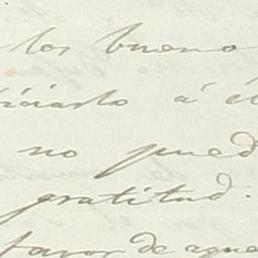 los bueno
á él
no pued
gratitud.
favor de aque